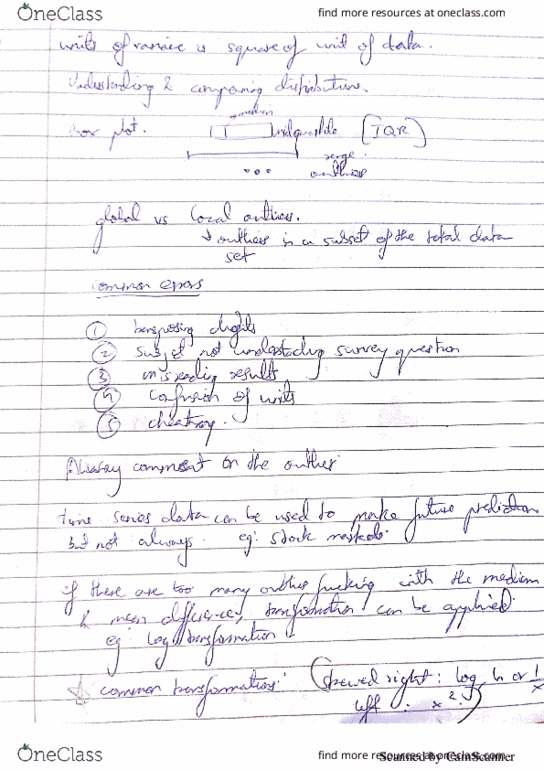 OneClass
find more resources at oneclass.com
units of variance is square of unit of data.
Understanding & comparing distributions.
median
Box plot.
[IQR]
range
outliers
global vs local outliers.
outliers in a subset of the total data
set
common errors
① transposing digits
② subject not understanding survey question
③ misreading results
④ confusion of units
⑤ cheating.
Alway comment on the outlier
time series data can be used to make future prediction
but not always. eg: stock markets.
if there are too many outlier fucking with the median
& mean differences, transformation can be applied
eg: log transformation
☆ common transformations: (skewed right: log, ln or 1/x
left . x².)
OneClass
find more resources at oneclass.com
Scanned by CamScanner